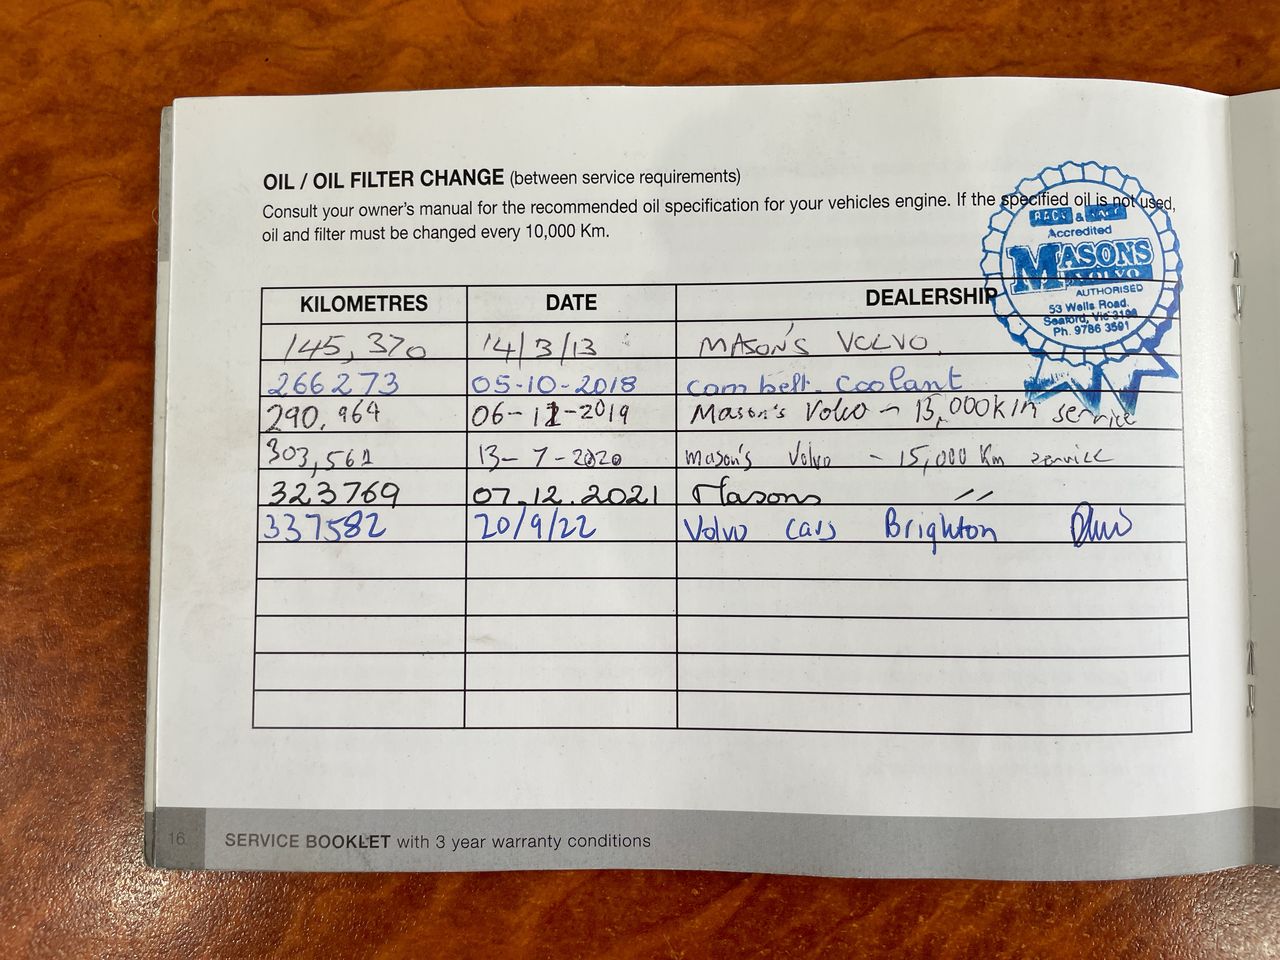 OIL / OIL FILTER CHANGE (between service requirements)
Consult your owner's manual for the recommended oil specification for your vehicles engine. If the specified oil is not used,
oil and filter must be changed every 10,000 Km.
RACV &
Accredited
MASONS
VOLVO
AUTHORISED
53 Wells Road,
Seaford, Vic 3198
Ph. 9786 3591
KILOMETRES DATE DEALERSHIP
145,370 14/3/13 MASON'S VOLVO.
266273 05-10-2018 cam belt. coolant
290,964 06-12-2019 Mason's Volvo - 15,000km service
303,561 13-7-2020 Mason's Volvo - 15,000 Km service
323769 07.12.2021 Masons //
337582 20/9/22 Volvo Cars Brighton
16 SERVICE BOOKLET with 3 year warranty conditions